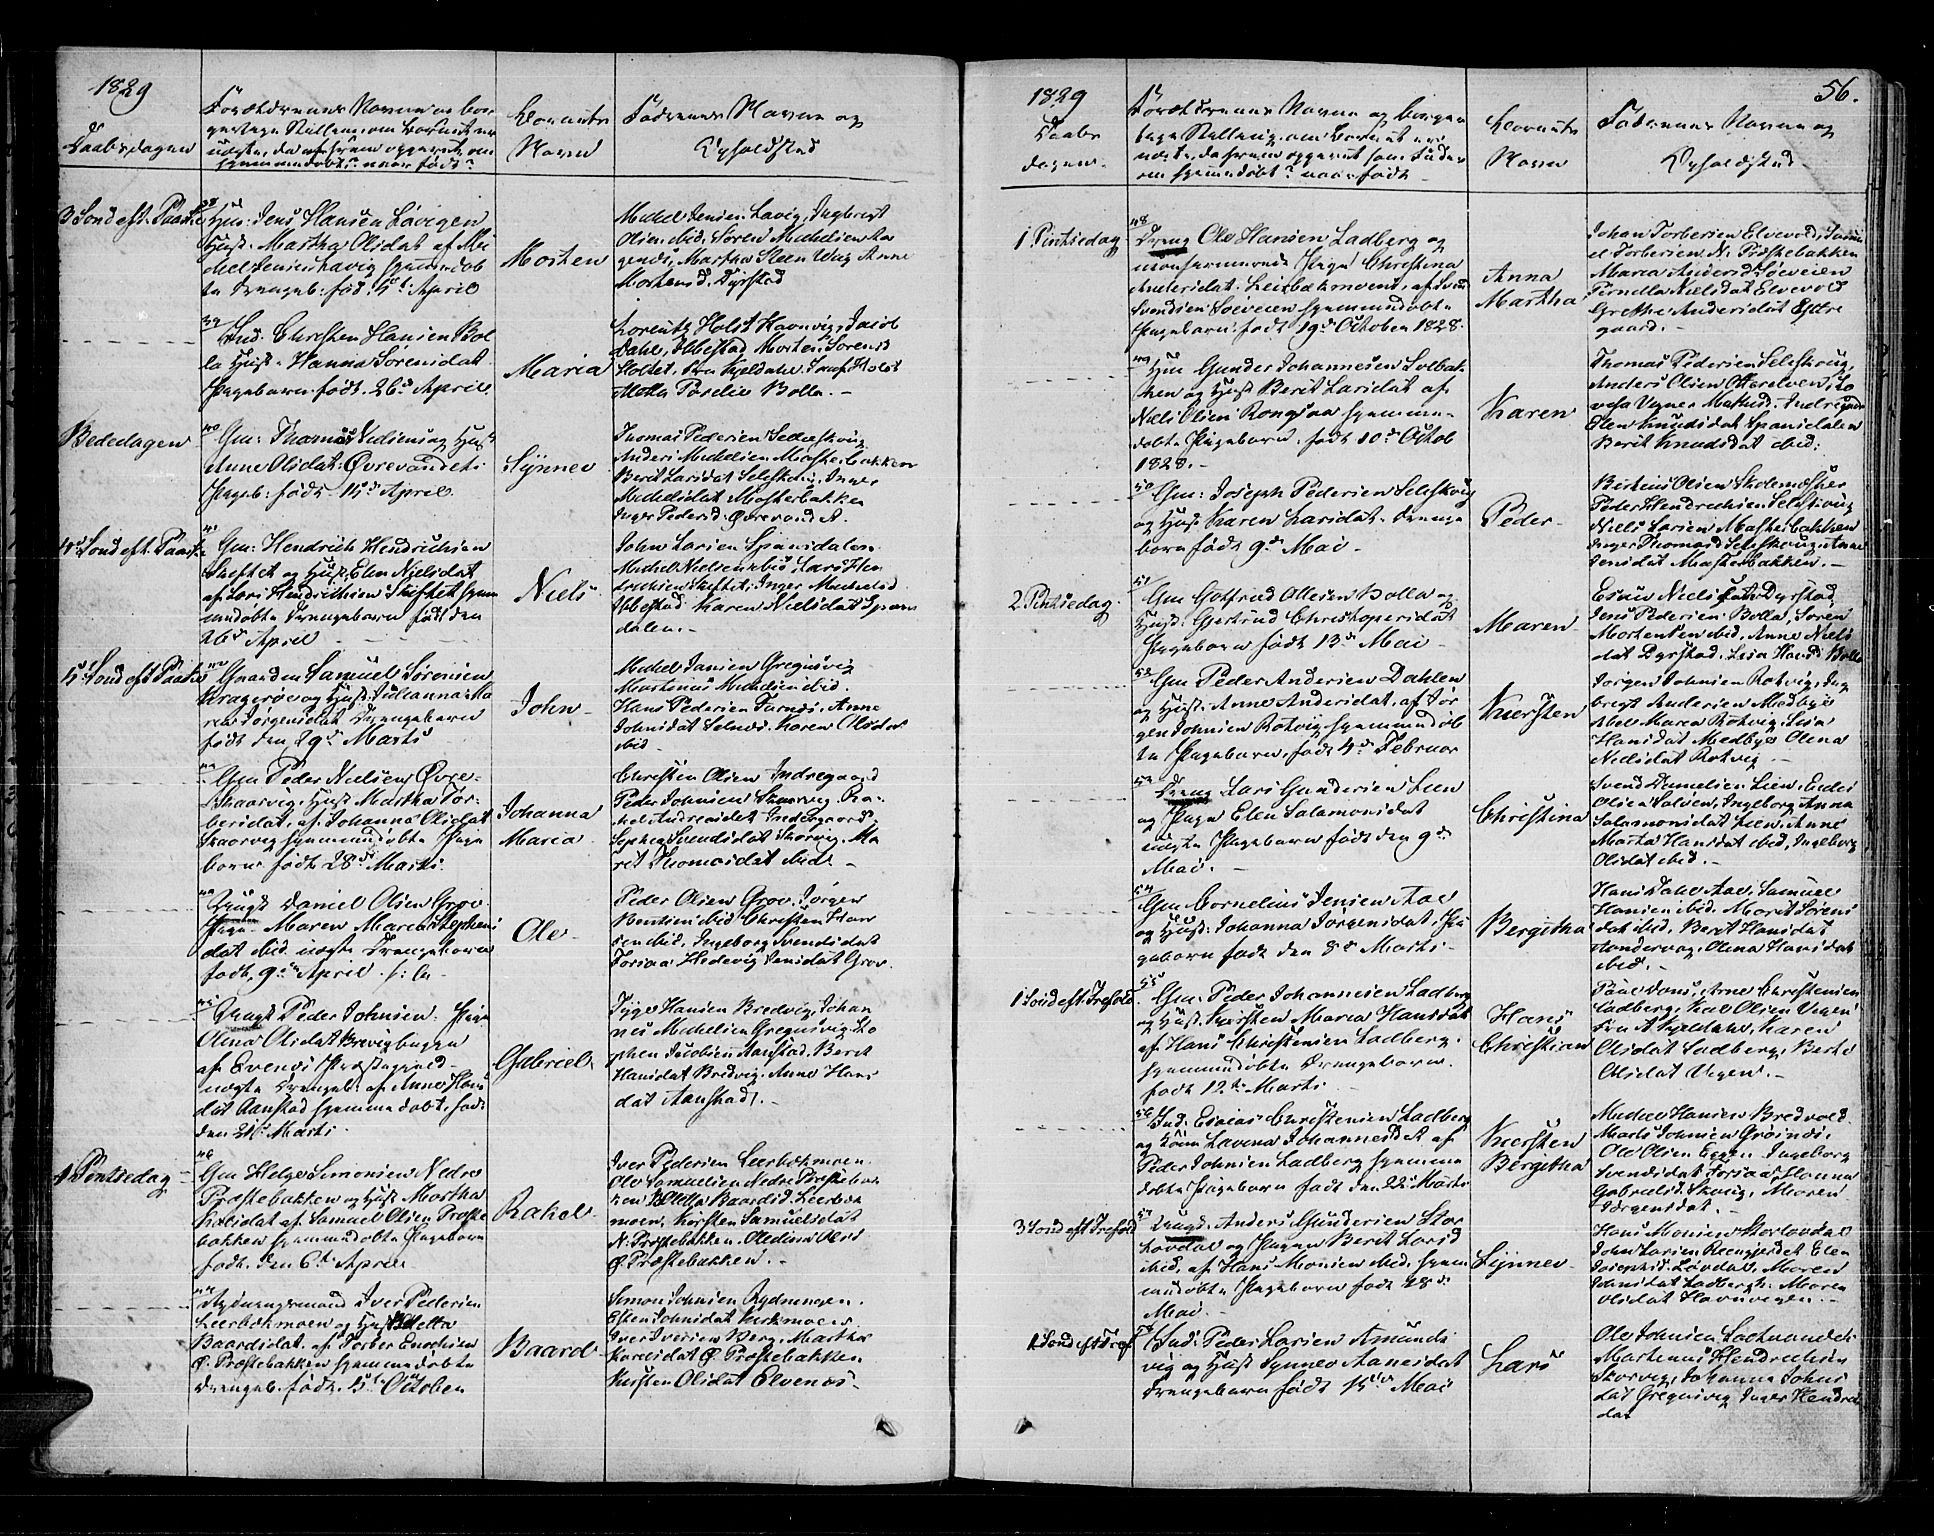 1829
Daabsdagen
Forældrenes Navne og bor-
gerlige Stilling, om Barnet er
uægte, da af hvem opgivet, om
hjemmedøbt? naar født?
Barnets
Navn
Faddernes Navne og
Opholdsted
3 Sond eft. Paaske
38
Huus: Jens Hansen Løvigen
Hust. Martha Olsdat af Mi
chel Jensen Lavig hjemmedøb
te Drengeb: fød 5te April
Morten
Michel Jensen Lavig, Ingbrigt
Olsen ibid, Søren Michelsen
Martha Steen Wog Anne
Mortensd. Dyrstad
39
Ind. Christen Hansen Bol
la Hust. Hanna Sørensdat
Pigebarn født 26de April
Maria
Lorentz Holst Havnvig, Jacob
Dahl, Ibbestad Morten Sørens
Mette Bolla. –
Bededagen
40
Gm: Thomas Nielsen og Hust
Anne Olsdat: Øvrevandet:
Pigeb: født 15de April.
Synnev
Thomas Pedersen Selleskoug
Anders Michelsen Mosterbakken
Berit Larsdat Selleskoug, Inger
Michelsdat Mosterbakken
Inger Pedersd: Øvrevandet.
4de Sond eft. Paaske
41
Gm: Hendrich Hendrichsen
Skiftet og Hust. Elen Nielsdat
af Lars Hendrichsen Skiftet hjem
medøbte Drengebarn født den
26de April
Niels
John Larsen Spansdalen
Michel Nielsen ibid, Lars Hen
drichsen Skiftet, Inger Michelsd
Ibbestad. Karen Nielsdat Spans
dalen. –
5te Sond eft. Paaske
42
Gaarden Samuel Sørensen
Kragerøe og Hust. Julianna Ma
ria Jørgensdat Drengebarn
født den 29de Marts
John
Michel Jansen Gregusvig
Martenus Michelsen ibid.
Hans Pedersen Furnes, Anne
Johnsdat Selnes. Karen Olsdat
ibid
43
Gm Peder Nielsen Øvre-
Skaarvig, Hust Martha Tor-
bersdat, af Johanna Olsdat
Skaarvig hjemmedøbte Pige
barn født 28de Marts.
Johanna
Maria
Christen Olsen Indregaard
Peder Johnsen Skaarvig. Ra-
hel Andreasdat Indregaard
Svendsdat Skorvig. Ma
ret Thomasdat ibid. –
44
Ungk Daniel Olsen Grov
Pige Maren Maria Stephens
dat ibid uægte Drengebarn
født 9de April
Ole
Peder Olsen Grov. Jørgen
Bentsen ibid Christen Han
sen ibid, Ingeborg Svendsdat
Forsaa, Hedevig Jensdat Grov.
45
Ungk Peder Johnsen. Pige
Olina Olsdat Brevigbugen
af Evenes Præstegjeld
uægte Drengeb: af Anne Hans
dat Aanstad hjemmedøbt, født
den 21de Marts
Gabriel
Tyge Hansen Bredvig, Johan
nes Michelsen Gregusvig, Ste
phen Jacobsen Aanstad, Berit
Hansdat Bredvig. Anne Hans
dat Aanstad. –
1 Pintsedag
46
Gm Helge Simonsen Nedre
Prøstebakken og Hust Martha
Karlsdat af Samuel Olsen Prøste
bakken hjemmedøbte Pigebarn
født den 6te April
Rakel
Iver Pedersen Leerbekmoen.
Ole Samuelsen Nedre Prøstebak
ken Oletta Baardsd. Leerbek
moen, Kersten Samuelsdat
N. Prøstebakken. Oledina Olsd
Ø. Prøstebakken. –
47
Rydningsmand Iver Pedersen
Leerbekmoen og Hust Oletta
Baardsdat. af Torber Enochsen
Ø. Prøstebakken hjemmedøbte
Drengeb. født. 5te October
Baard
Simon Johnsen Rydningen.
Esten Johnsdat Kirkmoen
Iver Iversen Berg, Martha
Karlsdat Ø. Prøstebakken
Kirsten Olsdat Elvenes
1829
Daabs
dagen
Forældrenes Navne og borger
lige Stilling, om Barnet er
uægte, da hvem opgivet som Fader
om hjemmedøbt? naar født
Barnets
Navn
Faddernes Navne og
Opholdsted
56.
1 Pintsedag
48
Dreng Ole Hansen Ladberg og
ukonfirmerede Pige Christina
Andersdat Leirbekmoen, af
Svendsen Soeveien hjemmedøbte
Pigebarn født 19de October 1828.
Anna
Martha
Johan Torbersen Elvevold,
el Torbersen N. Prøstebakken
Maria Andersd. Soeveien
Pernella Nielsdat Elvevold
Grethe Andersdat Eftre
gaard. –
49
Hm Gunder Johannesen Solbak
ken og Hust Berit Larsdat af
Niels Olsen Rongsaa hjemme-
døbte Pigebarn, født 10de Octob
1828. –
Karen
Thomas Pedersen Selleskoug,
Anders Olsen Otterelven, Lo
visa Vegner
Elen Knudsdat Spansdalen
Berit Knudsdat ibid:
50
Gm: Joseph Pedersen Selleskoug
og Hust Karen Larsdat. Drenge
barn født 9de Mai –
Peder
Bersvend Olsen Skolemester
Peder Hendrichsen Selleskoug
Niels Larsen Mosterbakken
Inger Thomasd Selleskoug, Anne
Jensdat Mosterbakken. –
2 Pintsedag.
51
Gm Gotfried Ollesen Bolla og
Hust: Gjertrud Christophersdat
Pigebarn født 13de Mai –
Maren
Esaias Nielssen Dyrstad,
Jens Pedersen Bolla, Søren
Mortensen ibid, Anne Niels
dat Dyrstad. Lisa Hansd: Bolla
52
Gm Peder Andersen Dahlen
og Hust. Anne Andersdat, af Jør
gen Johnsen Rotvig hjemmedøb
te Pigebarn, født 4de Februar
Kiersten
Jørgen Johnsen Rotvig, Ing
brigt Andersen Medbye
Abel Maria Rotvig, Lisa
Hansdat Medbye Olena
Nielsdat Rotvig –
53
Dreng Lars Gundersen Leen
og Pige Elen Salamonsdat
uægte Pigebarn født den 9de
Mai. –
Christina
Svend Danielsen Lien, Endri
Olsen Salsen, Ingeborg Anna
Salamonsdat Leen. Anne
Marta Hansdat ibid, Ingeborg
Olsdat ibid. –
54
Gm Cornelius Jensen Aae
og Hust: Johanna Jørgensdat. Pi
gebarn født den 8de Marts –
Bergitha
Hans Dahl Aae, Samuel
Hansen ibid. Marit Sørens
dat ibid, Berit Hansdat
Olena Hansdat
ibid. –
1 Sond eft. Trefold
55
Gm: Peder Johannesen Ladberg
og Hust. Kjersten Maria Hansdat
af Hans Christensen Ladberg.
hjemmedøbte Drengebarn.
født 12te Marts
Hans
Christian
Paul Dons, Arne Christensen
Ladberg, Karl Olsen Vegen
Fru A Kjeldahl, Karen
Olsdat Ladberg, Berte
Olsdat Vegen. –
56
Ind. Esaias Christensen Ladberg
og Kone Lavina Johannesdat af
Peder Johnsen Ladberg hjemme
døbte Pigebarn født den 22de Marts
Kiersten
Bergitha
Michel Hansen Bredvold.
Marts Johnsen Grøines,
Ole Olsen Eggen Ingeborg
Svendsdat Forsaa, Hanna
Gabrielsd. Skoug, Maren
Jørgensdat. –
3 Sond eft Trefold
57
Ungk. Anders Gundersen Stor
Lovdal og Pigen Berit Larsd
ibid. af Hans Monsen ibid. hjem
medøbte Pigebarn født 28de
Mai. –
Synnev
Hans Monsen Storlovdal
John Larsen Elen
Josephsd: Lovdal. Maren
Johnsdat Ladbergh. Maren
Olsdat Havnvegen. –
4 Sond eft Tref
58
Ind: Peder Larsen Amunds
vig og Hust Synnev Aanesdat
Drengebarn født 15de Mai
Lars
Ole Johnsen
Martenus Hendrichsen
Skorvig, Johanna Johns
dat Gregusvig Inger Hendrichs
dat